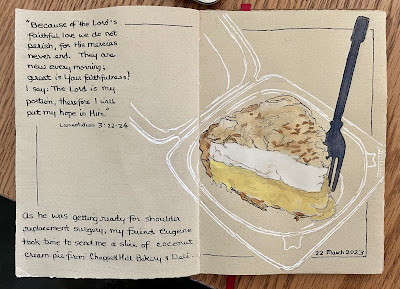 "Because of the Lord's
faithful love we do not
perish, for His mercies
never end. They are
new every morning;
great is Your faithfulness!
I say: The Lord is my
portion, therefore I will
put my hope in Him."
Lamentations 3:22-24
As he was getting ready for shoulder
replacement surgery, my friend Eugene
took time to send me a slice of coconut
cream pie from Chapel Hill Bakery & Deli.
22 March 2023